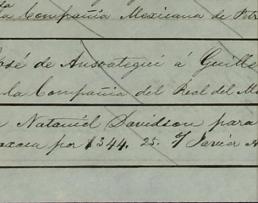 Compañía Mexicana de
José de Ansoategui á Guille
la Compañía del Real del M
Nataniel Davidson para
por $344. 25. Y Javier A